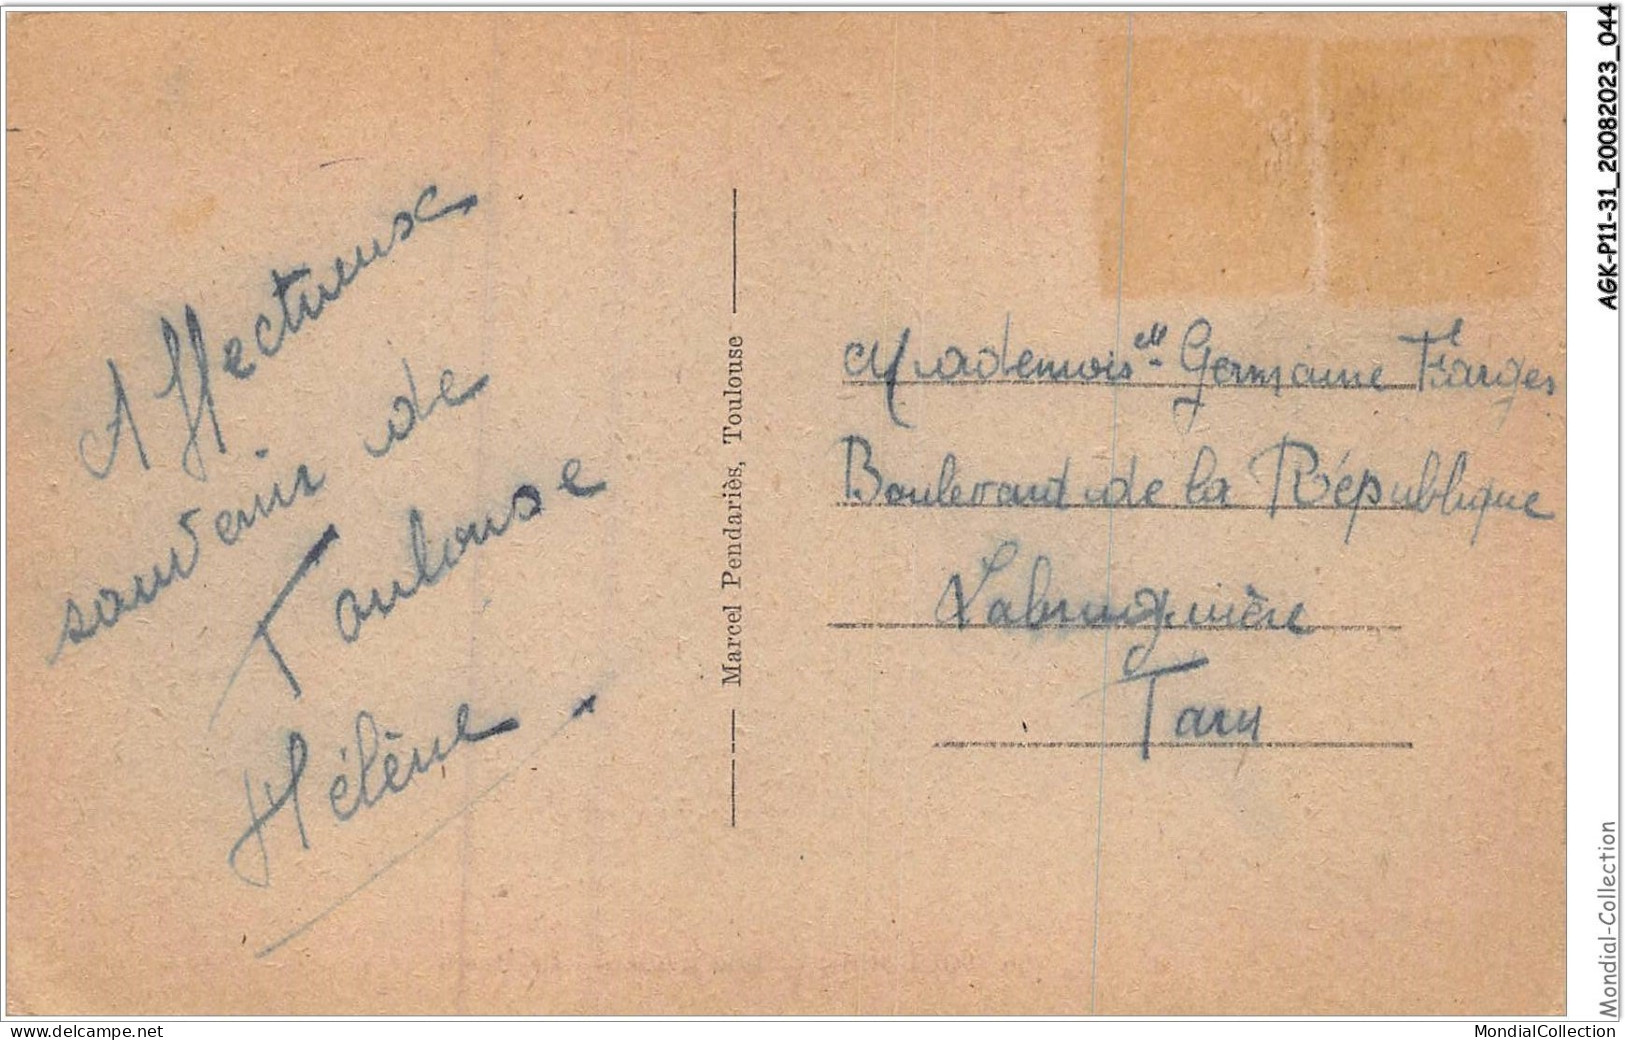 Affectueuse
souvenir de
Toulouse
Hélène
Marcel Pendariès, Toulouse
Mademoisell Germaine Farges
Boulevard de la République
Labruguière
Tarn
AGK-P11-31_20082023_044
Mondial-Collection
www.delcampe.net
MondialCollection